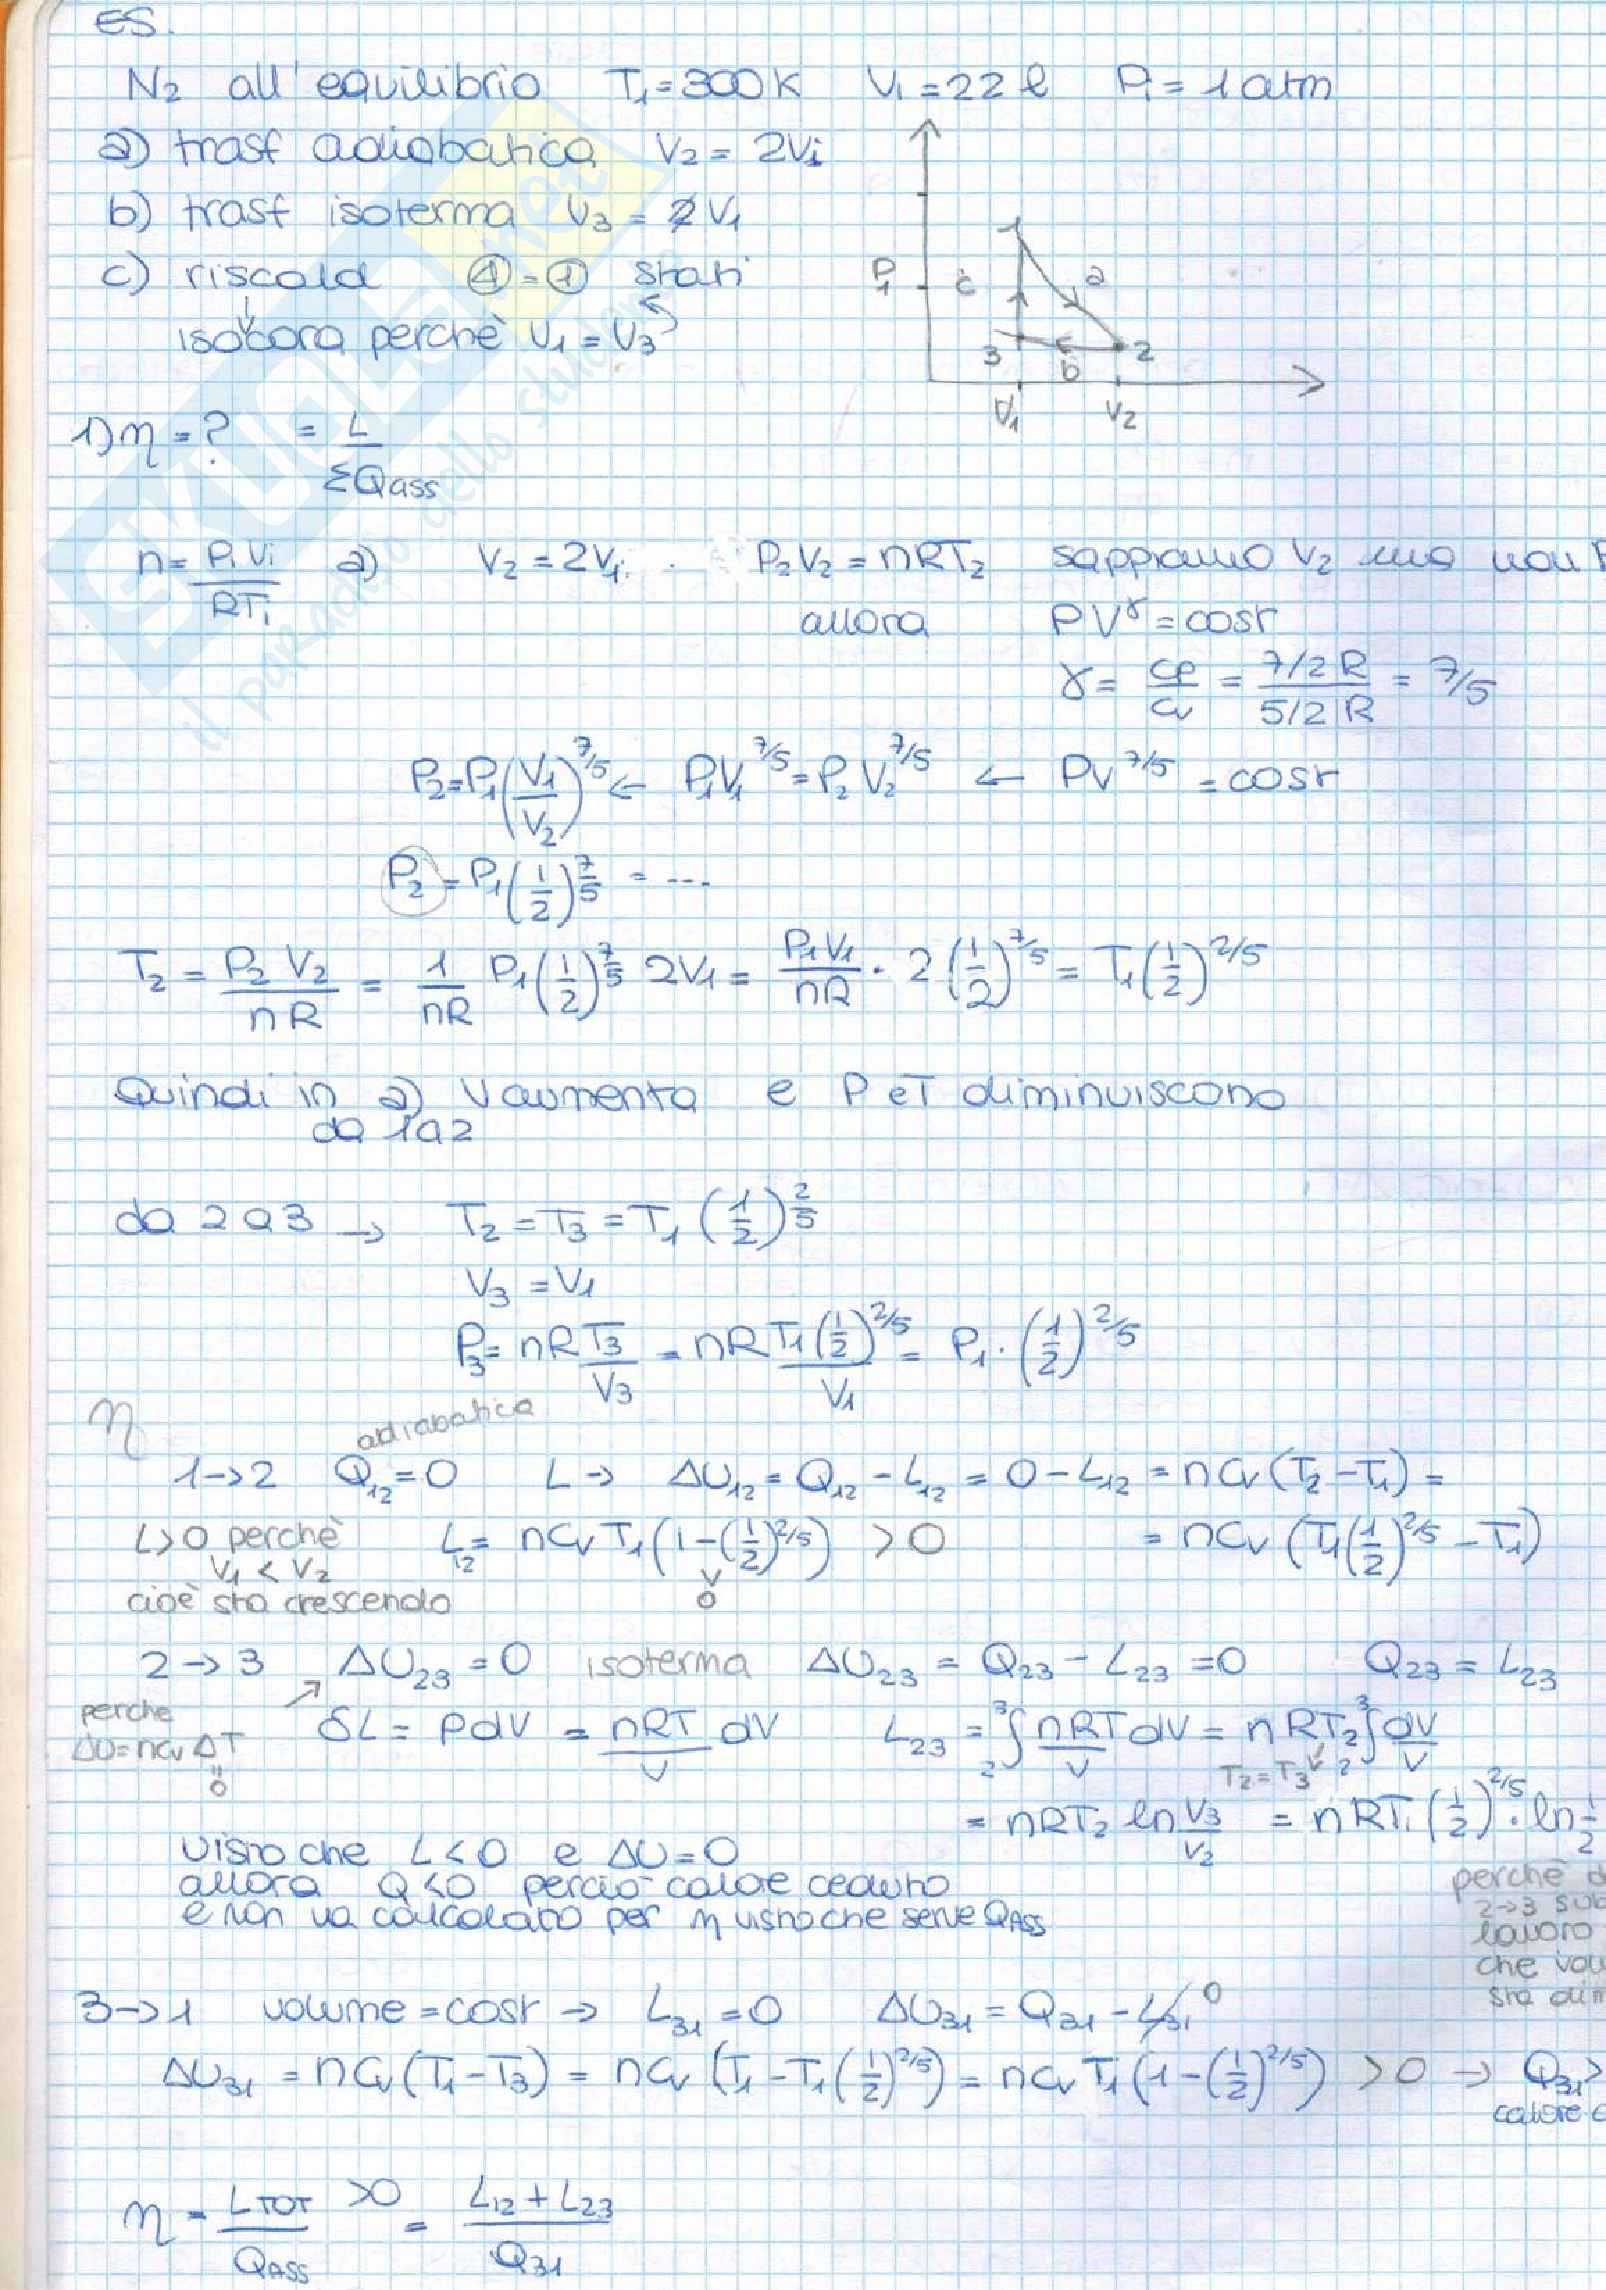 ES.
N2 all'equilibrio T1=300K V1=22 l P1=1atm
a) trasf adiabatica V2=2V1
b) trasf isoterma V3=V1
c) riscald ④=① stati
isocora perchè V1=V3
P1 c a
1
3 b 2
V1 V2
1) η=? = L/ΣQass
n=P1V1/RT1 a) V2=2V1 P2V2=nRT2 sappiamo V2 ma non P
allora PV^γ=cost
γ=cp/cv=(7/2 R)/(5/2 R)=7/5
P2=P1(V1/V2)^7/5 ← P1V1^7/5=P2V2^7/5 ← PV^7/5=cost
P2=P1(1/2)^7/5=...
T2=P2V2/nR=1/nR P1(1/2)^7/5 2V1=P1V1/nR · 2(1/2)^7/5=T1(1/2)^2/5
Quindi in a) V aumenta e P e T diminuiscono
da 1 a 2
da 2 a 3 → T2=T3=T1(1/2)^2/5
V3=V1
P3=nRT3/V3=nRT1(1/2)^2/5/V1=P1·(1/2)^2/5
η
adiabatica
1→2 Q12=0 L→ ΔU12=Q12-L12=0-L12=nCv(T2-T1)=
L>0 perchè L12=nCvT1(1-(1/2)^2/5)>0 =nCv(T1(1/2)^2/5-T1)
V1<V2 v
cioè sta crescendo 0
2→3 ΔU23=0 isoterma ΔU23=Q23-L23=0 Q23=L23
perche δL=PdV=nRT/V dV L23=2∫3 nRT/V dV=nRT2 2∫3 dV/V
ΔU=nCvΔT T2=T3
=0
=nRT2 ln V3/V2=nRT1(1/2)^2/5·ln 1/2
Visto che L<0 e ΔU=0
allora Q<0 perciò calore ceduto
e non va calcolato per η visto che serve QASS
perchè
2→3
lavoro
che
sta
3→1 volume=cost → L31=0 ΔU31=Q31-L31 0
ΔU31=nCv(T1-T3)=nCv(T1-T1(1/2)^2/5)=nCvT1(1-(1/2)^2/5)>0 → Q31>
calore
η=LTOT/QASS >0 =(L12+L23)/Q31